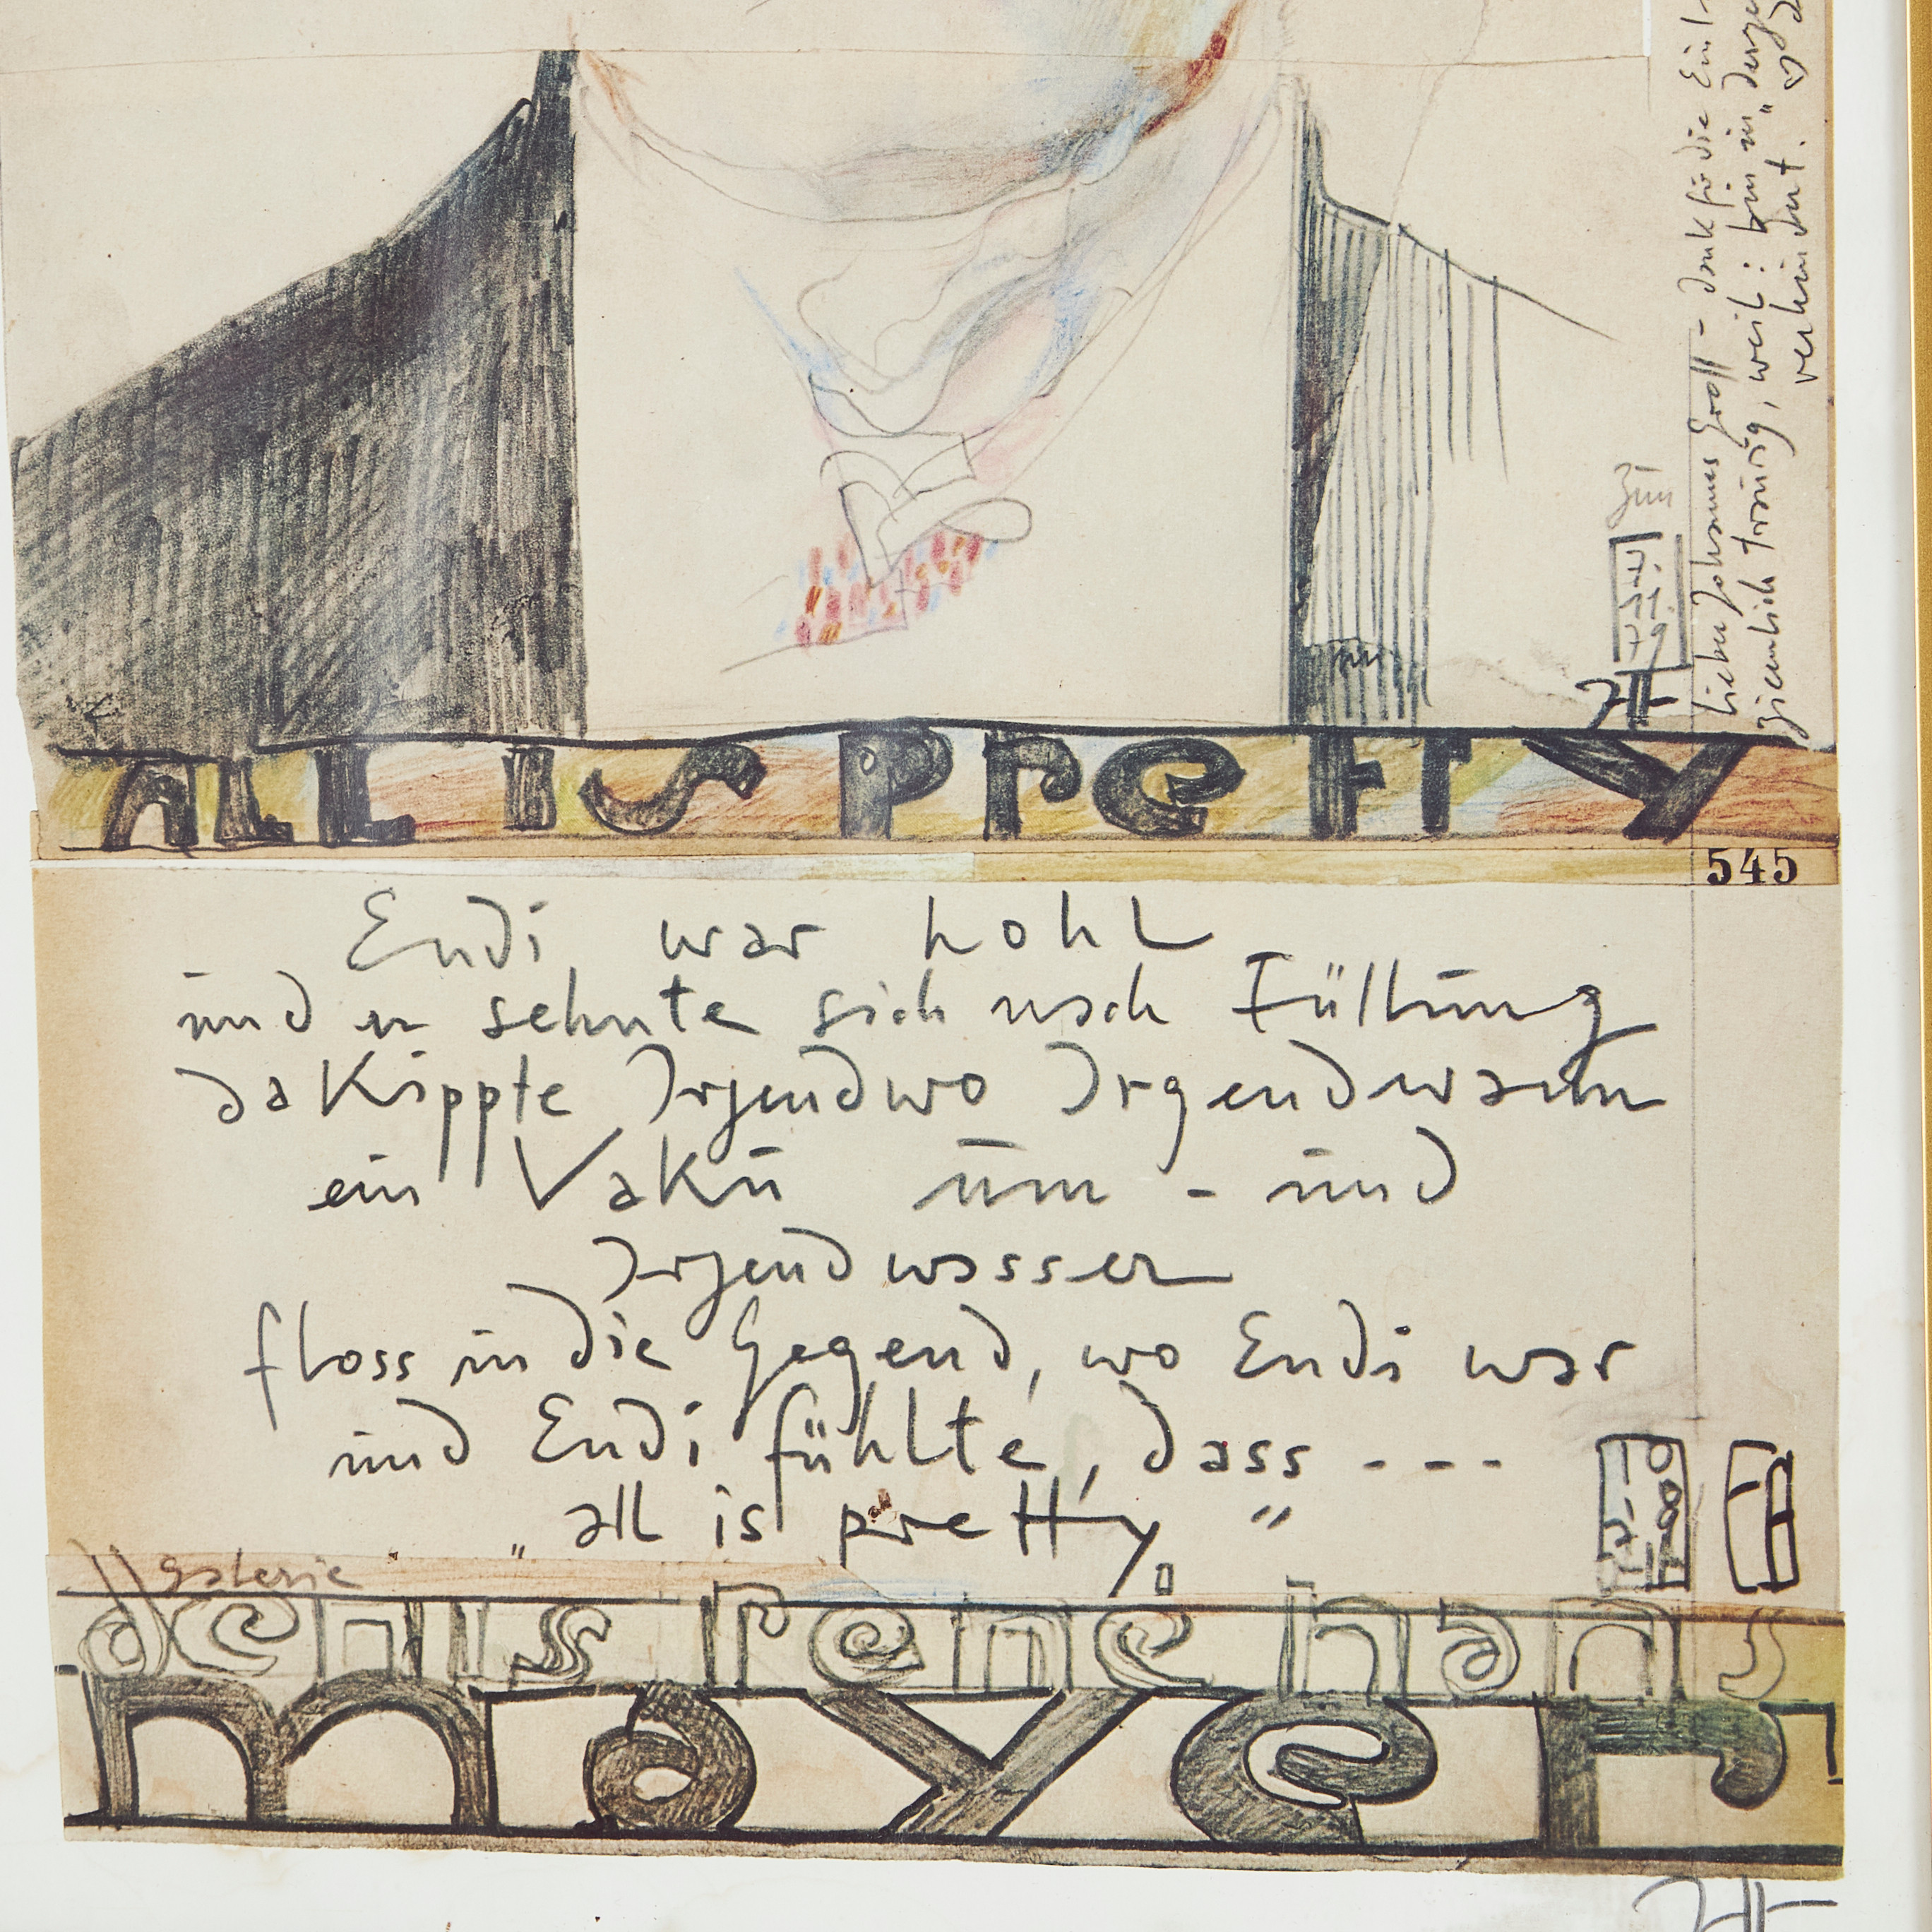 ALL is pretty
545
Endi war hohl
und er sehnte sich nach Füllung
da Kippte Irgendwo Irgendwann
ein Vaku um - und
Irgendwasser
floss in die Gegend, wo Endi war
und Endi fühlte, dass ---
„all is pretty"
Galerie
denis rené hans
mayer
Lieber Johannes Groll - dank für die
ziemlich traurig, weil: bin in „
verhindert. ♡